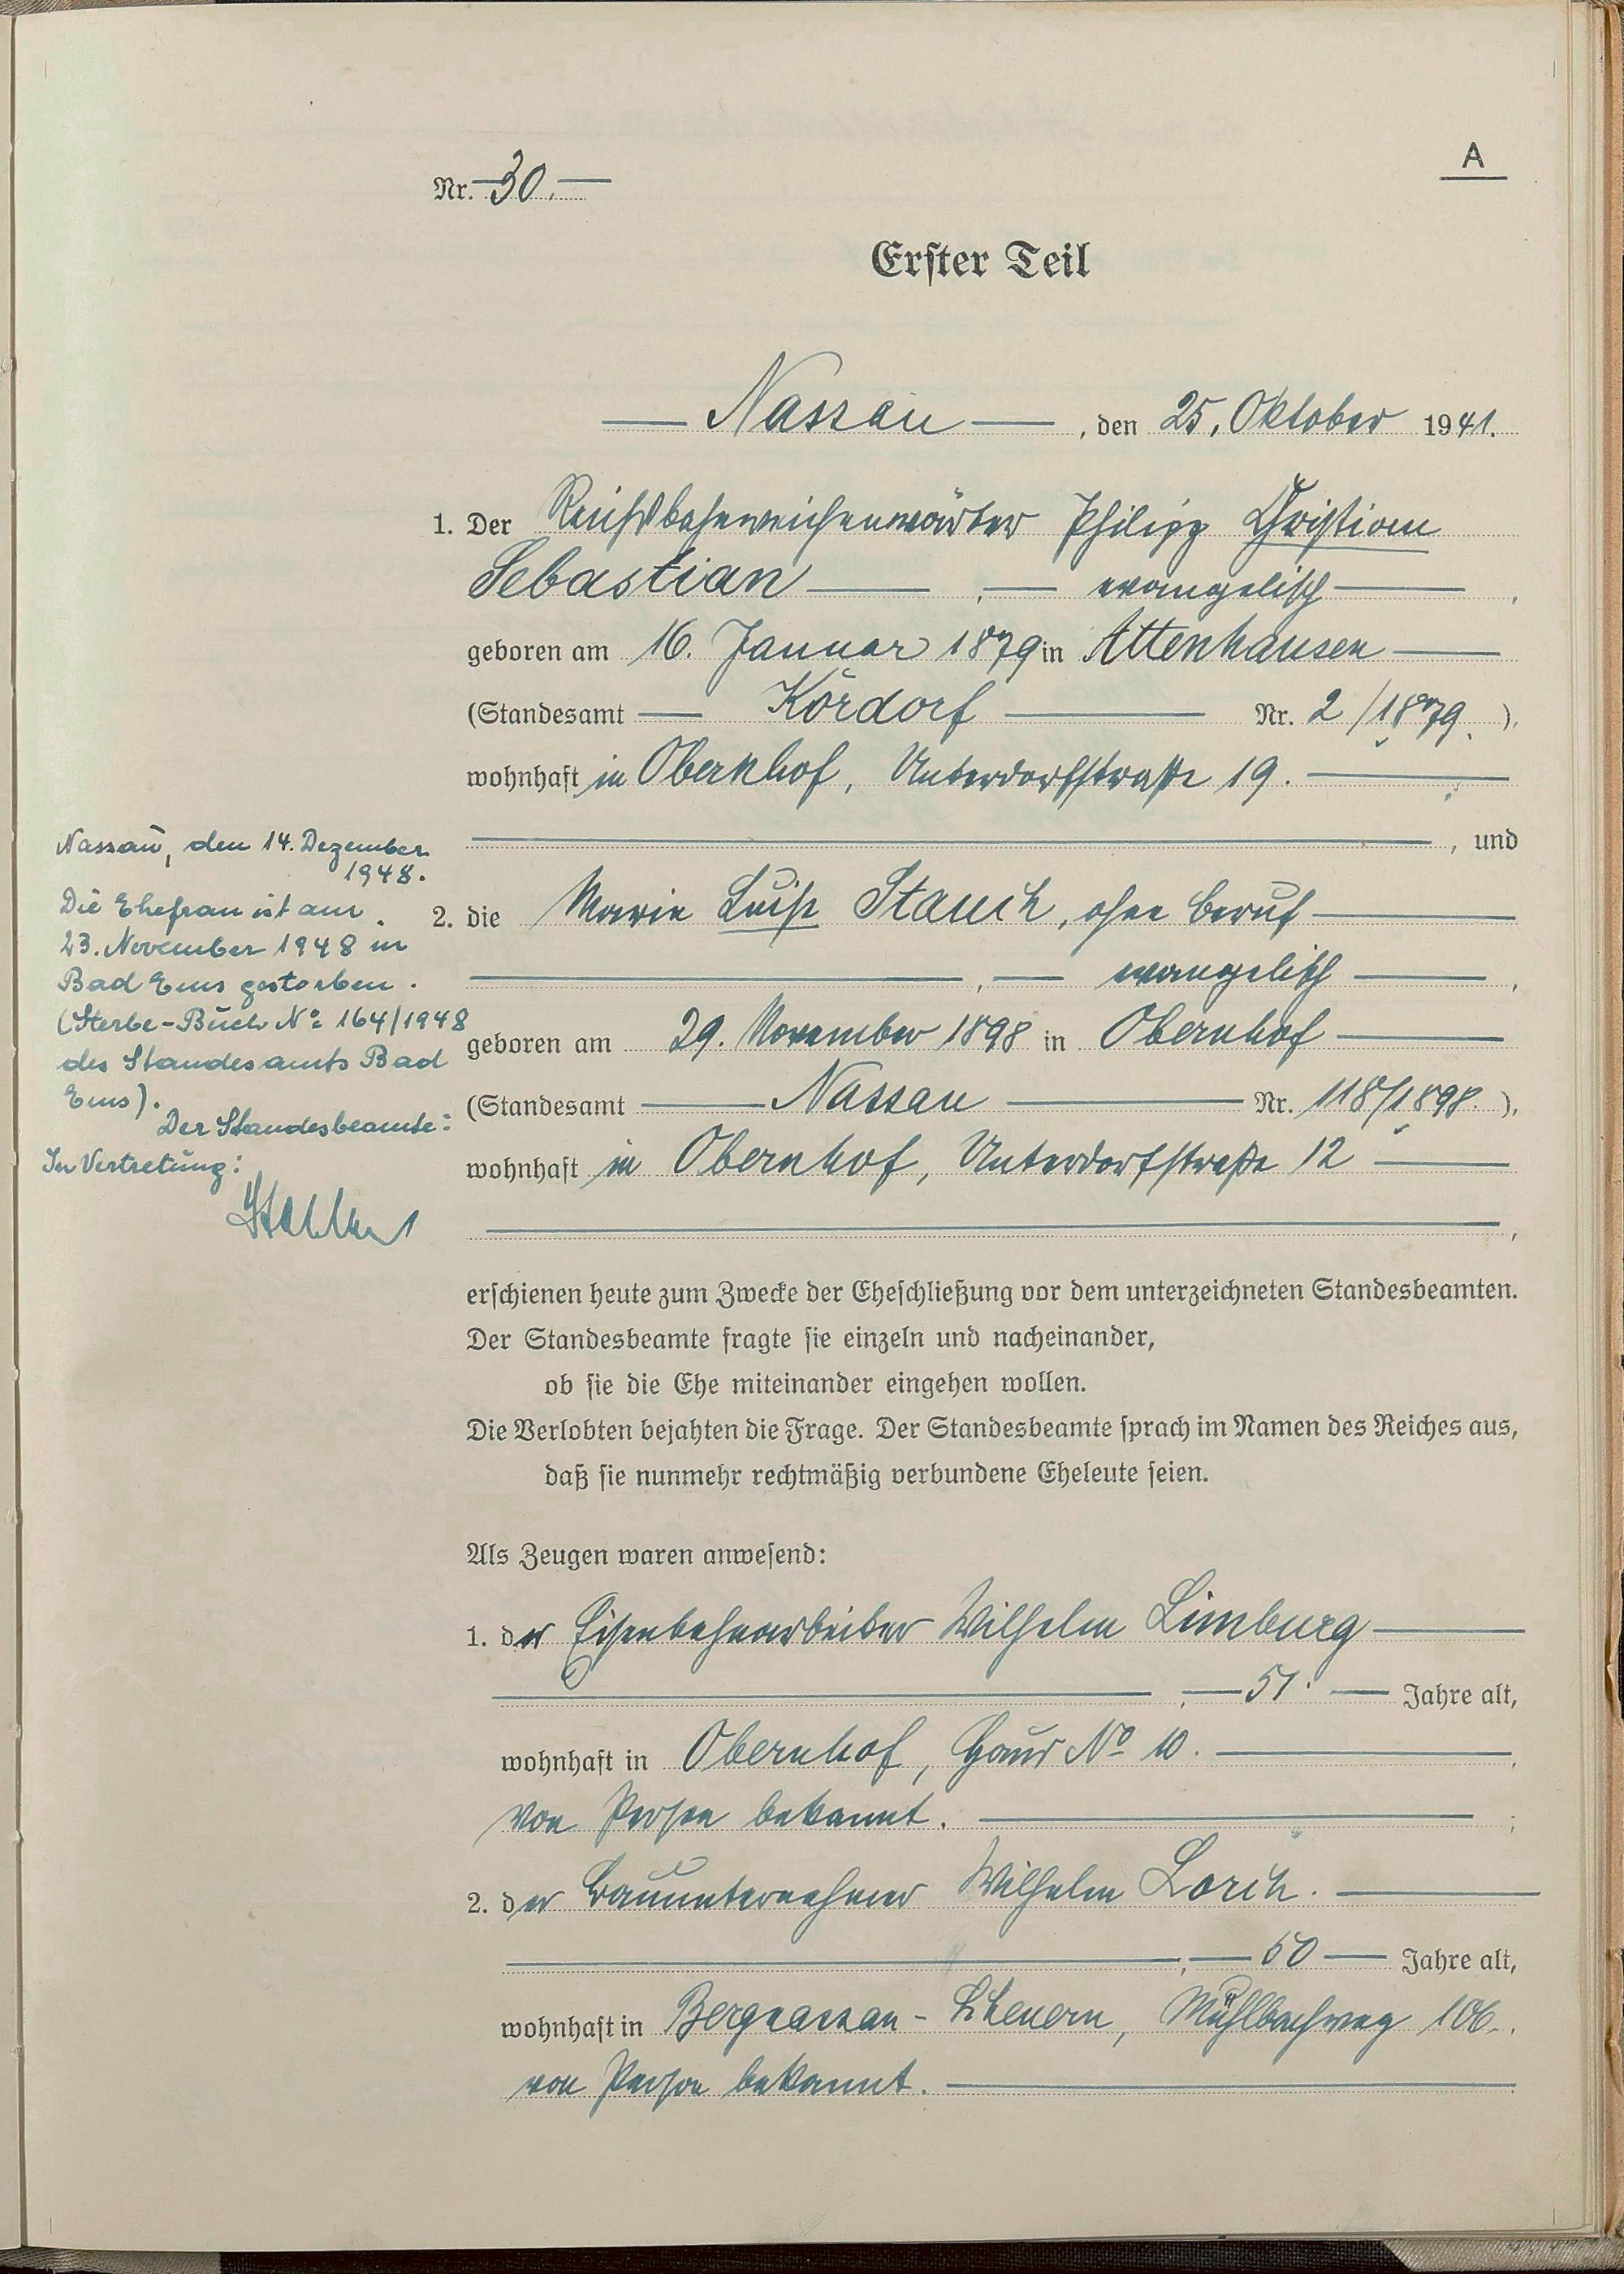 A
Nr. 30.
Erster Teil
Nassau, den 25. Oktober 1941.
1. Der Reichsbahnweichenwärter Philipp Christian
Sebastian, evangelisch,
geboren am 16. Januar 1879 in Attenhausen
(Standesamt Kördorf Nr. 2/1879.),
wohnhaft in Obernhof, Unterdorfstraße 19.
, und
2. die Marie Luise Stauch, ohne Beruf
, evangelisch,
geboren am 29. November 1898 in Obernhof
(Standesamt Nassau Nr. 118/1898.),
wohnhaft in Obernhof, Unterdorfstraße 12
,
erschienen heute zum Zwecke der Eheschließung vor dem unterzeichneten Standesbeamten.
Der Standesbeamte fragte sie einzeln und nacheinander,
ob sie die Ehe miteinander eingehen wollen.
Die Verlobten bejahten die Frage. Der Standesbeamte sprach im Namen des Reiches aus,
daß sie nunmehr rechtmäßig verbundene Eheleute seien.
Als Zeugen waren anwesend:
1. der Eisenbahnarbeiter Wilhelm Limburg
, 51. Jahre alt,
wohnhaft in Obernhof, Haus No 10.,
von Person bekannt. ;
2. der Bauunternehmer Wilhelm Lorch.
, 50 Jahre alt,
wohnhaft in Bergnassau-Scheuern, Mühlbachweg 106.
von Person bekannt.
Nassau, den 14. Dezember
1948.
Die Ehefrau ist am
23. November 1948 in
Bad Ems gestorben.
(Sterbe-Buch No 164/1948
des Standesamts Bad
Ems).
Der Standesbeamte:
In Vertretung: